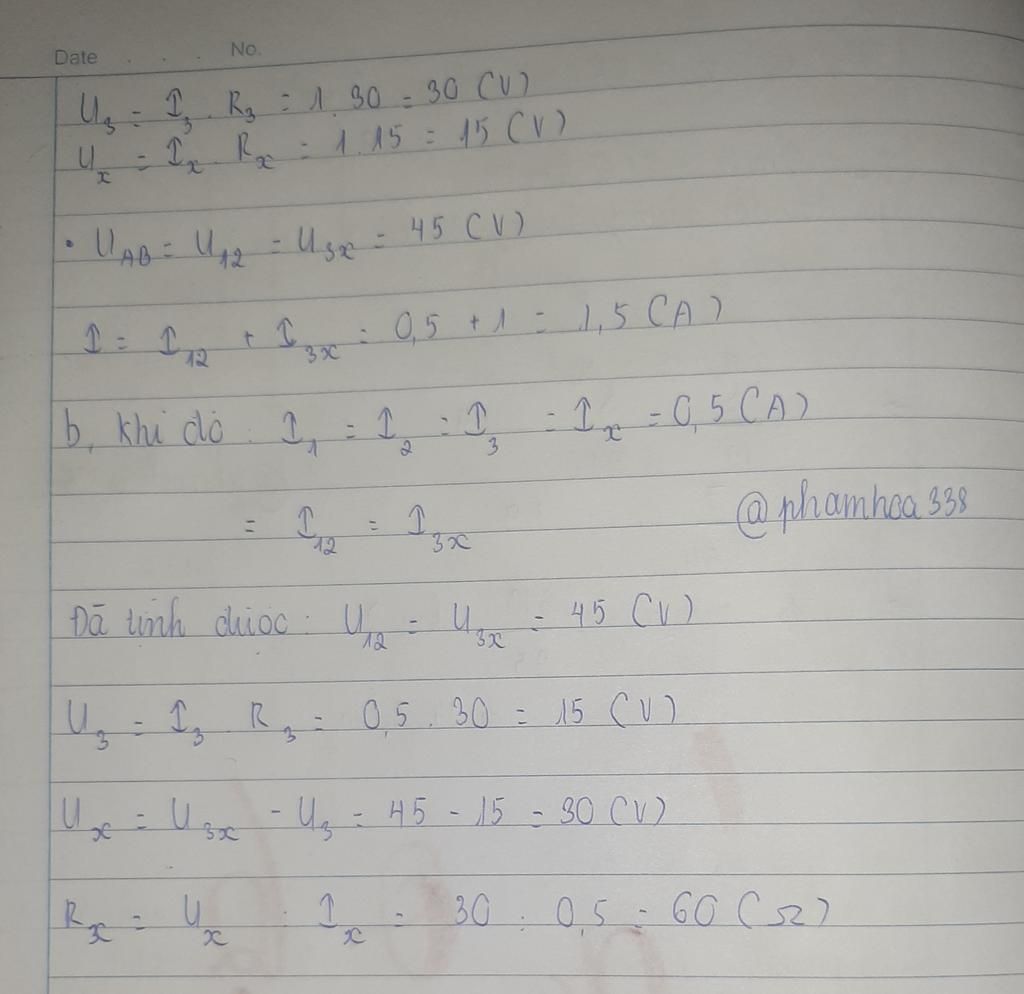 Date . . . No.
U₃ = I₃ . R₃ = 1 . 30 = 30 (V)
Uₓ = Iₓ . Rₓ = 1 . 15 = 15 (V)
• U_AB = U₁₂ = U₃ₓ = 45 (V)
I = I₁₂ + I₃ₓ = 0,5 + 1 = 1,5 (A)
b, Khi đó : I₁ = I₂ = I₃ = Iₓ = 0,5 (A)
= I₁₂ = I₃ₓ
@phamhoa338
Đã tính được : U₁₂ = U₃ₓ = 45 (V)
U₃ = I₃ . R₃ = 0,5 . 30 = 15 (V)
Uₓ = U₃ₓ - U₃ = 45 - 15 = 30 (V)
Rₓ = Uₓ : Iₓ = 30 : 0,5 = 60 (Ω)